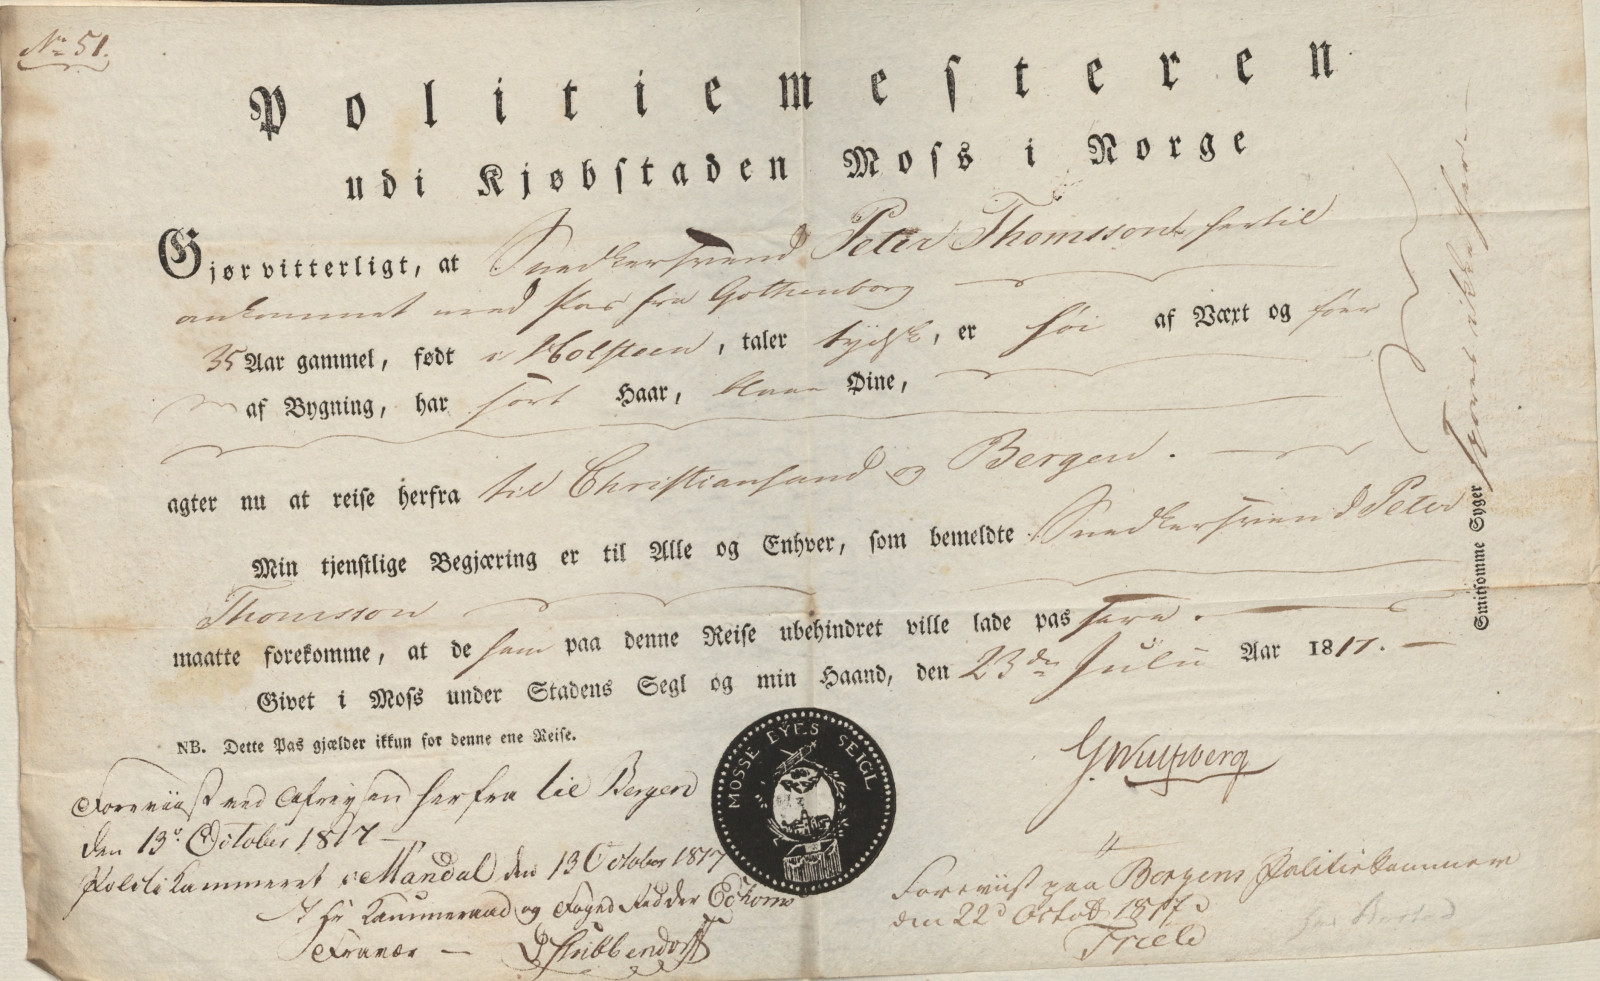 No 51.
Politiemesteren
udi Kjøbstaden Moss i Norge
Gjør vitterligt, at Snedkersvend Peter Thomsson, hertil
ankommet med Pas fra Gothenborg
35 Aar gammel, født i Holsteen, taler tydsk, er høi af Væxt og føer
af Bygning, har sort Haar, blaae Øine,
agter nu at reise herfra til Christiansand og Bergen.
Min tjenstlige Begjæring er til Alle og Enhver, som bemeldte Snedkersvend Peter
Thomsson
maatte forekomme, at de ham paa denne Reise ubehindret ville lade pas fare.
Givet i Moss under Stadens Segl og min Haand, den 23de Julii Aar 1817.
NB. Dette Pas gjælder ikkun for denne ene Reise.
G. Wulfsberg
MOSSE BYES SEIGL
Smitsomme Syger
Foreviist ved Afreysen herfra til Bergen
den 13e October 1817
Politikammeret i Mandal den 13 October 1817
I Hr Kammerraad og Foged
Fravær
Foreviist paa Bergens Politiekammer
den 22d Octob 1817